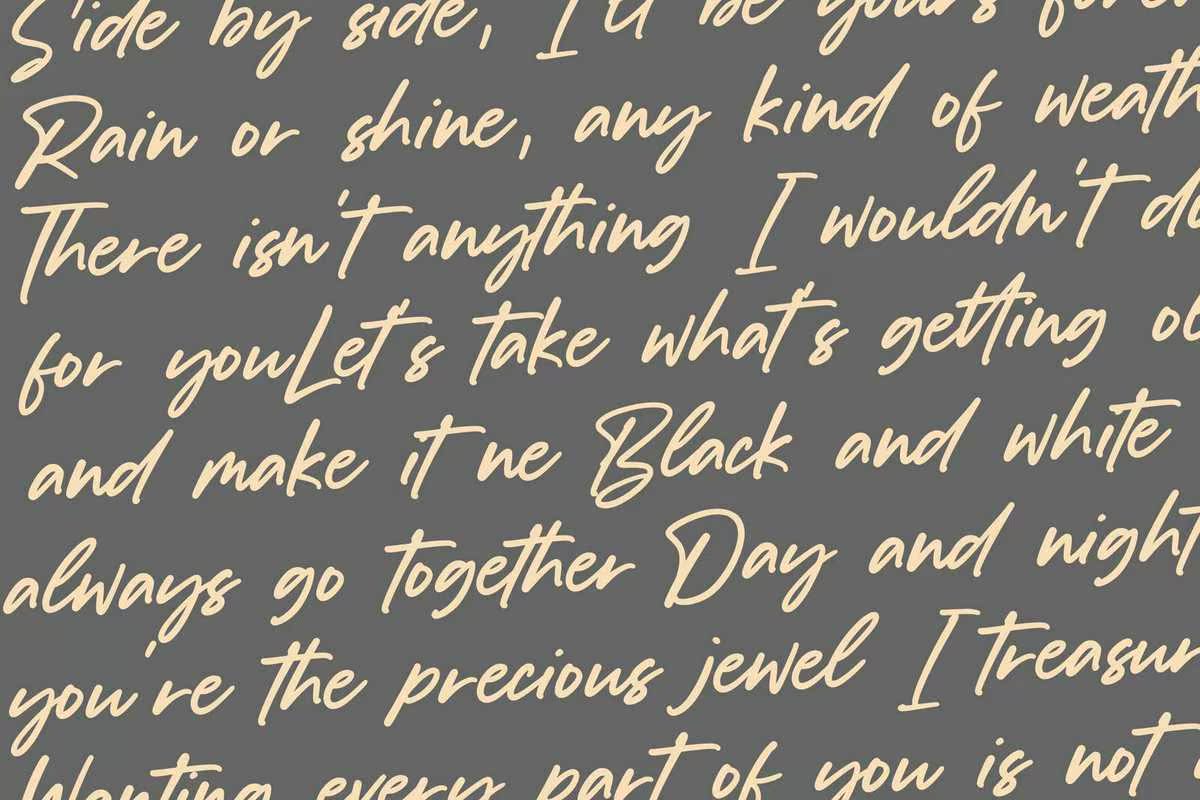 Side by side, I'll be yours forev
Rain or shine, any kind of weath
There isn't anything I wouldn't do
for youLet's take what's getting ol
and make it ne Black and white
always go together Day and night
you're the precious jewel I treasur
Wanting every part of you is not